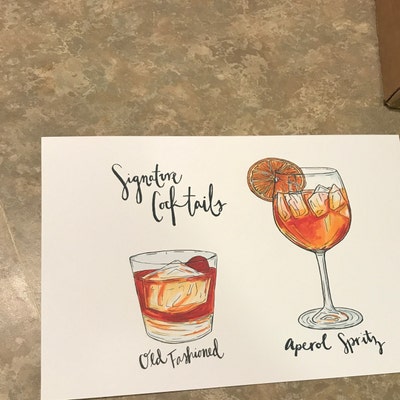 Signature
Cocktails
Old Fashioned
Aperol Spritz